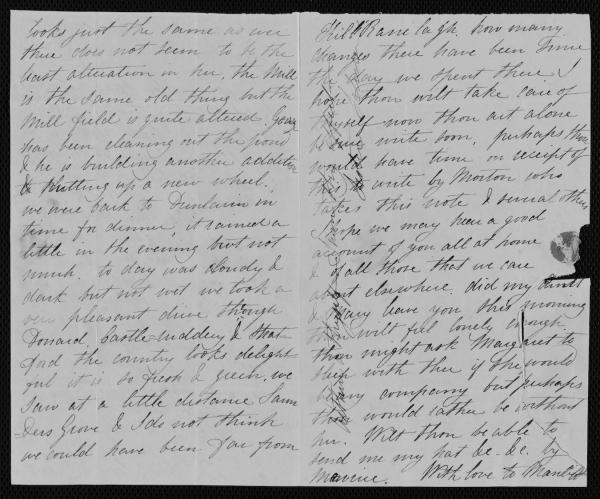 looks just the same as ever
there does not seem to be the
least alteration in her, the Mill
is the same old thing but the
Mill field is quite altered.
has been cleaning out the pond
& he is building another addition
& putting up a new wheel.
we were back to Dunlavin in
time for dinner, it rained a
little in the evening but not
much. to day was cloudy &
dark but not wet we took a
very pleasant drive through
Donard, Castle-ruddery & Strat-
ford the country looks delight
ful it is so fresh & green. we
saw at a little distance Saun
ders Grove & I do not think
we could have been far from
Hill Ranelagh. how many
changes there have been since
the day we spent there. I
hope thou wilt take care of
thyself now thou art alone
be sure write soon, perhaps thou
would have time on receipt of
this to write by Morton who
takes this note & several others
I hope we may hear a good
account of you all at home
& of all those that we care
about elsewhere. did my Aunt
& Mary leave you this morning
thou wilt feel lonely enough.
thou might ask Margaret to
sleep with thee if she would
be any company but perhaps
thou would rather be without
her. Wilt thou be able to
send me my hat &c. &c. by
With love to